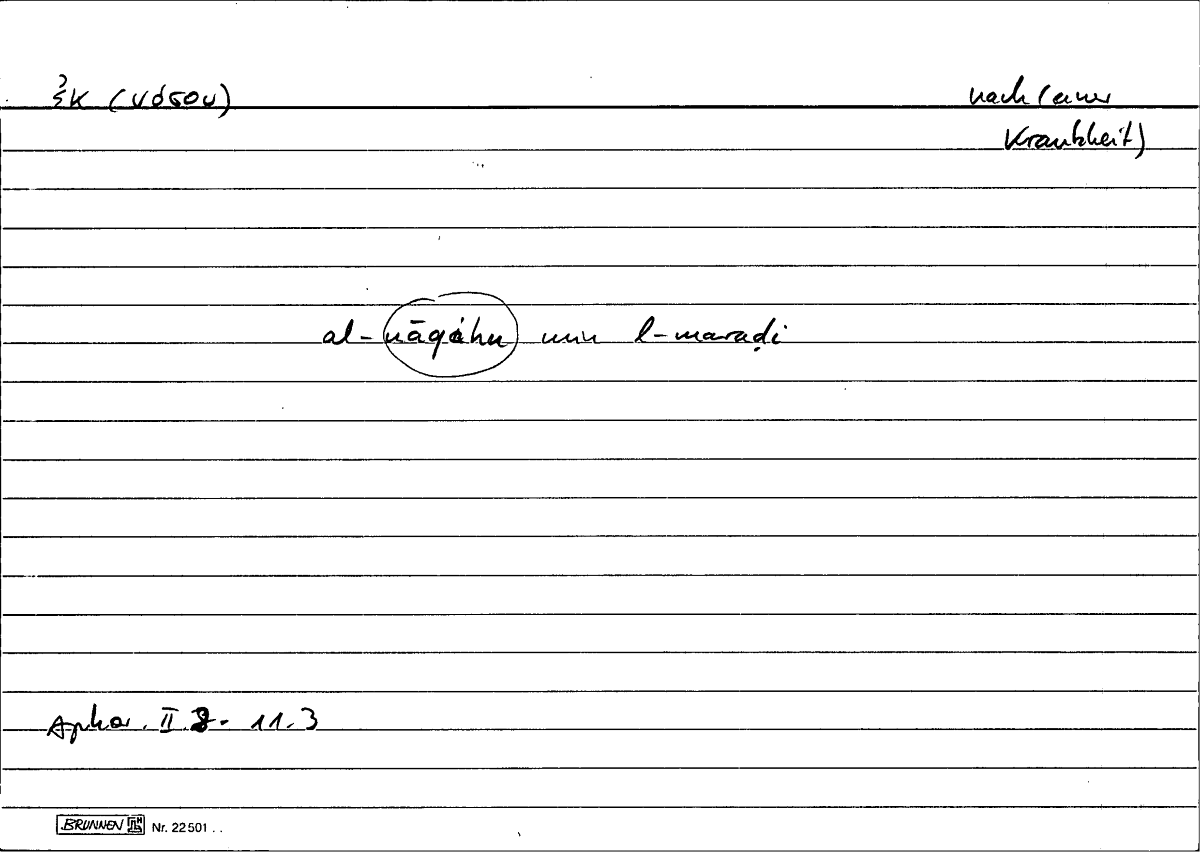 ἐκ (νόσου)
nach (einer
Krankheit)
al-nāqihu min l-maraḍi
Aphor. II 8. 11.3
BRUNNEN Nr. 22501 ..